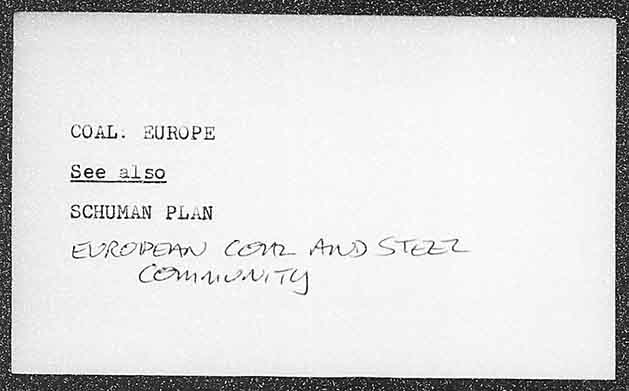 COAL. EUROPE
See also
SCHUMAN PLAN
EUROPEAN COAL AND STEEL
COMMUNITY